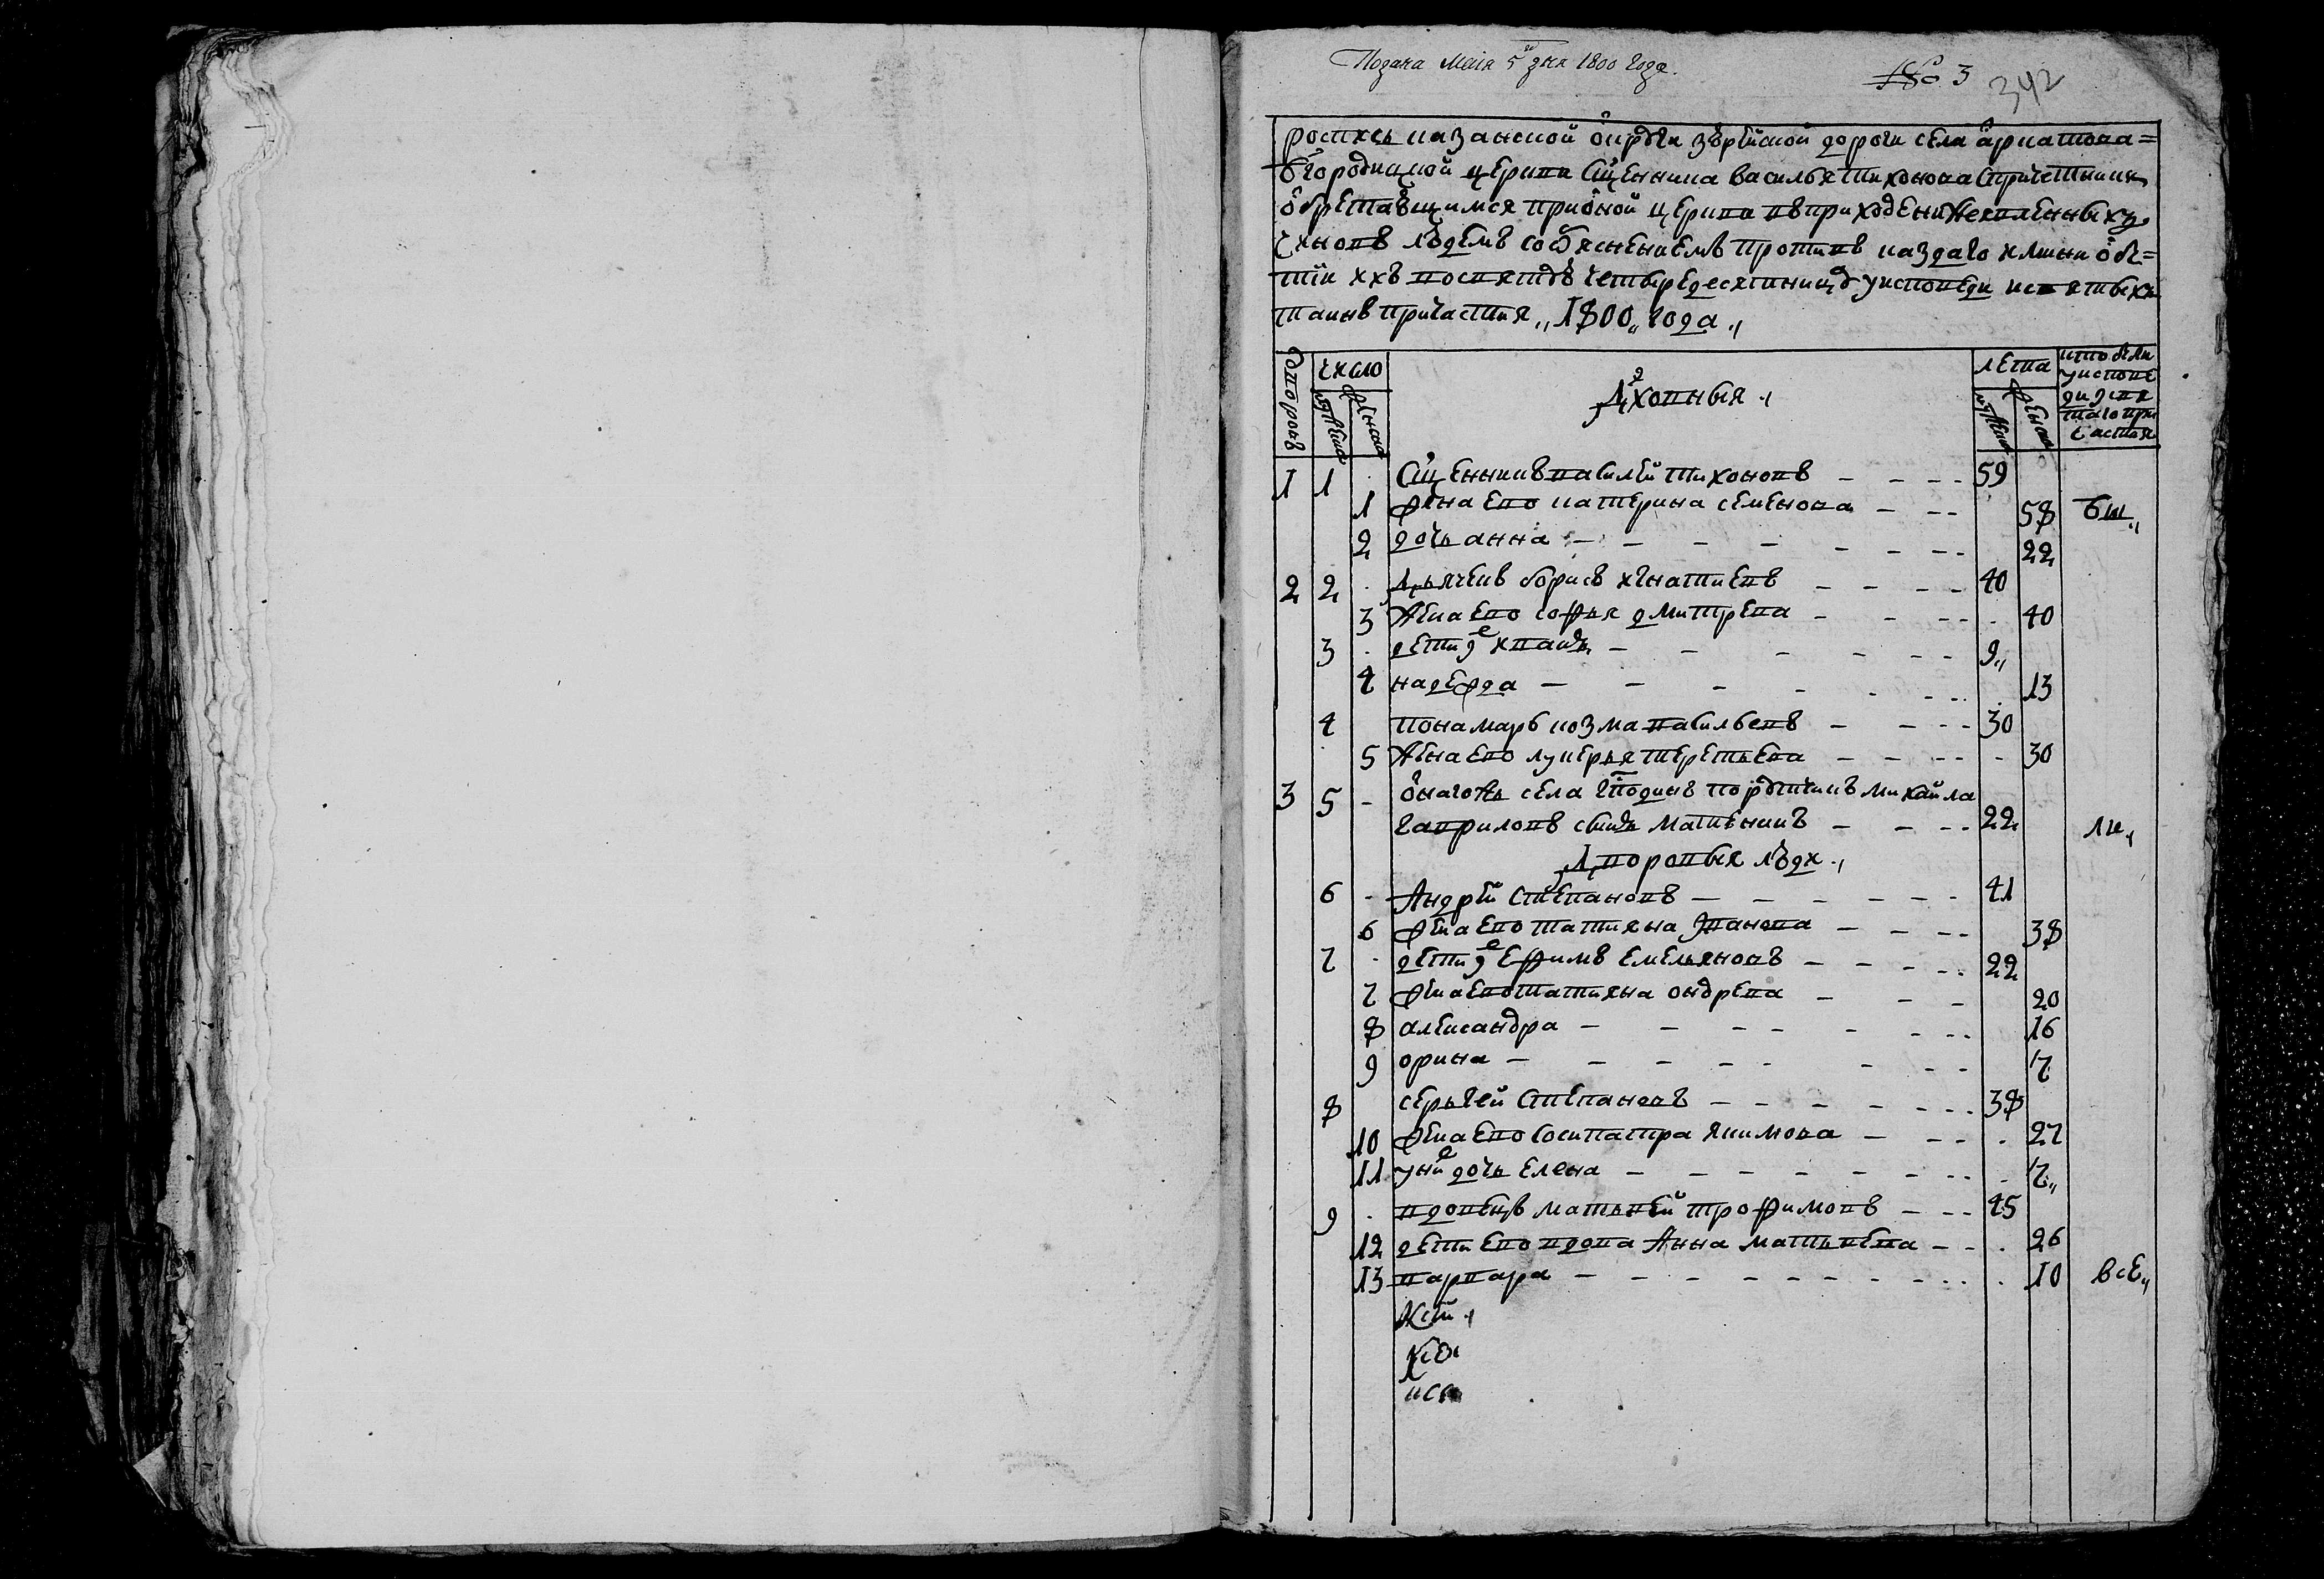 Подана Маия 5 дня 1800 года.
№ 3
342
роспись казанской округи зюрейской дороги села арнатова=
бгородицкой церкви Сщенника василья тихонова Спричетники
обретающимся при оной церкви в приходе нижеявленныхъ
чиновъ людемъ со изъяснениемъ противъ каждаго имяни обы=
тии ихъ во святую четыредесятницу у исповеди и святыхъ
таинъ причастия 1800 года
дворовъ
число
мужеска
женска
Духовныя
лета
мужеска
женска
кто были
у испове
ди и свя
таго при
частия
1 1 Сщенникъ василей тихоновъ 59
1 жена ево катерина семенова 58 быи
2 дочь анна 22
2 2 Дьячекъ борисъ игнатиевъ 40
3 жена ево софья дмитрева 40
3 дети иванъ 9
4 надежда 13
4 понамарь козма васильевъ 30
5 жена ево лукерья теретьева 30
3 5 онагожь села михайла
гавриловъ сынъ 22
Дворовыя люди
6 Андрей Степановъ 41
6 жена ево татияна иванова 38
7 дети ефимъ емельяновъ 22
7 жена ево татияна ондрева 20
8 александра 16
9 орина 7
8 серьгей Степановъ 38
10 жена ево Соситатра якимова 27
11 у них дочь елена 7
9 вдовецъ матьвей трофимовъ 45
12 дети ево вдова Анна матьвева 26
13 варвара 10 всЕ